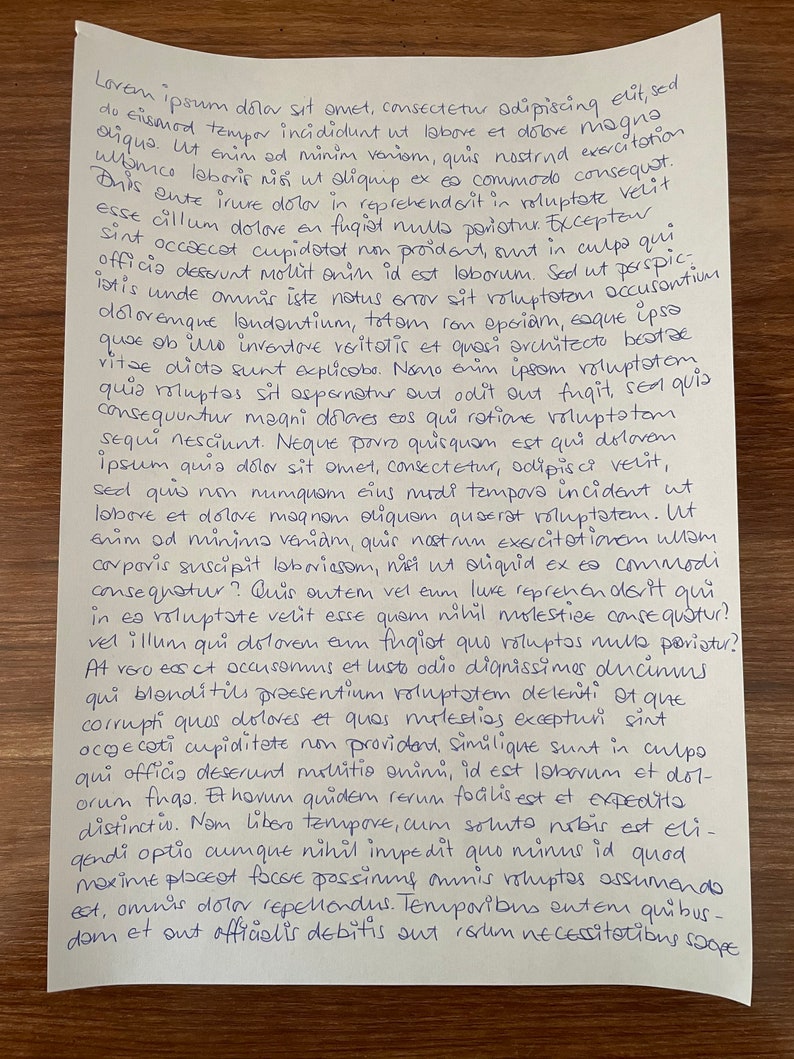 Lorem ipsum dolor sit amet, consectetur adipiscing elit, sed
do eiusmod tempor incididunt ut labore et dolore magna
aliqua. Ut enim ad minim veniam, quis nostrud exercitation
ullamco laboris nisi ut aliquip ex ea commodo consequat.
Duis aute irure dolor in reprehenderit in voluptate velit
esse cillum dolore eu fugiat nulla pariatur. Excepteur
sint occaecat cupidatat non proident, sunt in culpa qui
officia deserunt mollit anim id est laborum. Sed ut perspic-
iatis unde omnis iste natus error sit voluptatem accusantium
doloremque laudantium, totam rem aperiam, eaque ipsa
quae ab illo inventore veritatis et quasi architecto beatae
vitae dicta sunt explicabo. Nemo enim ipsam voluptatem
quia voluptas sit aspernatur aut odit aut fugit, sed quia
consequuntur magni dolores eos qui ratione voluptatem
sequi nesciunt. Neque porro quisquam est qui dolorem
ipsum quia dolor sit amet, consectetur, adipisci velit,
sed quia non numquam eius modi tempora incident ut
labore et dolore magnam aliquam quaerat voluptatem. Ut
enim ad minima veniam, quis nostrum exercitationem ullam
corporis suscipit laboriosam, nisi ut aliquid ex ea commodi
consequatur? Quis autem vel eum iure reprehenderit qui
in ea voluptate velit esse quam nihil molestiae consequatur?
vel illum qui dolorem eum fugiat quo voluptas nulla pariatur?
At vero eos et accusamus et iusto odio dignissimos ducimus
qui blanditiis praesentium voluptatem deleniti at que
corrupti quos dolores et quas molestias excepturi sint
occaecati cupiditate non provident, similique sunt in culpa
qui officia deserunt mollitia animi, id est laborum et dol-
orum fuga. Et harum quidem rerum facilis est et expedita
distinctio. Nam libero tempore, cum soluta nobis est eli-
gendi optio cumque nihil impedit quo minus id quod
maxime placeat facere possimus, omnis voluptas assumenda
est, omnis dolor repellendus. Temporibus autem quibus-
dam et aut officialis debitis aut rerum necessitatibus saepe